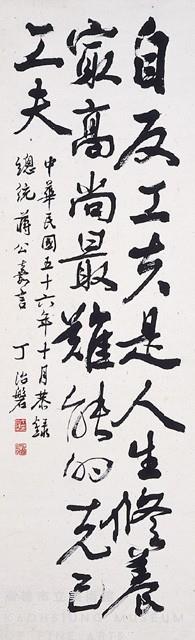 自反工夫是人生修養
最高尚最難能的克己
工夫
中華民國五十六年十月恭錄
總統蔣公嘉言 丁治磐